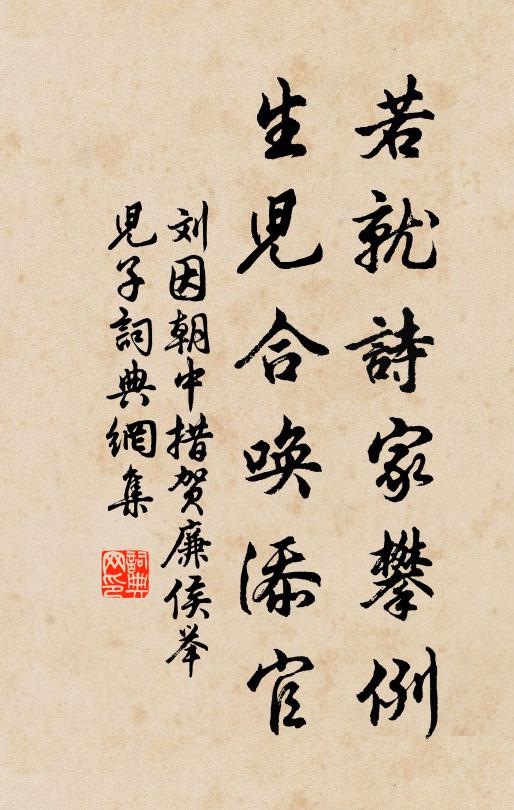 若就詩家攀例
生児合唤添官
刘因朝中措贺廉侯举
児子詞典網集
詞典网印